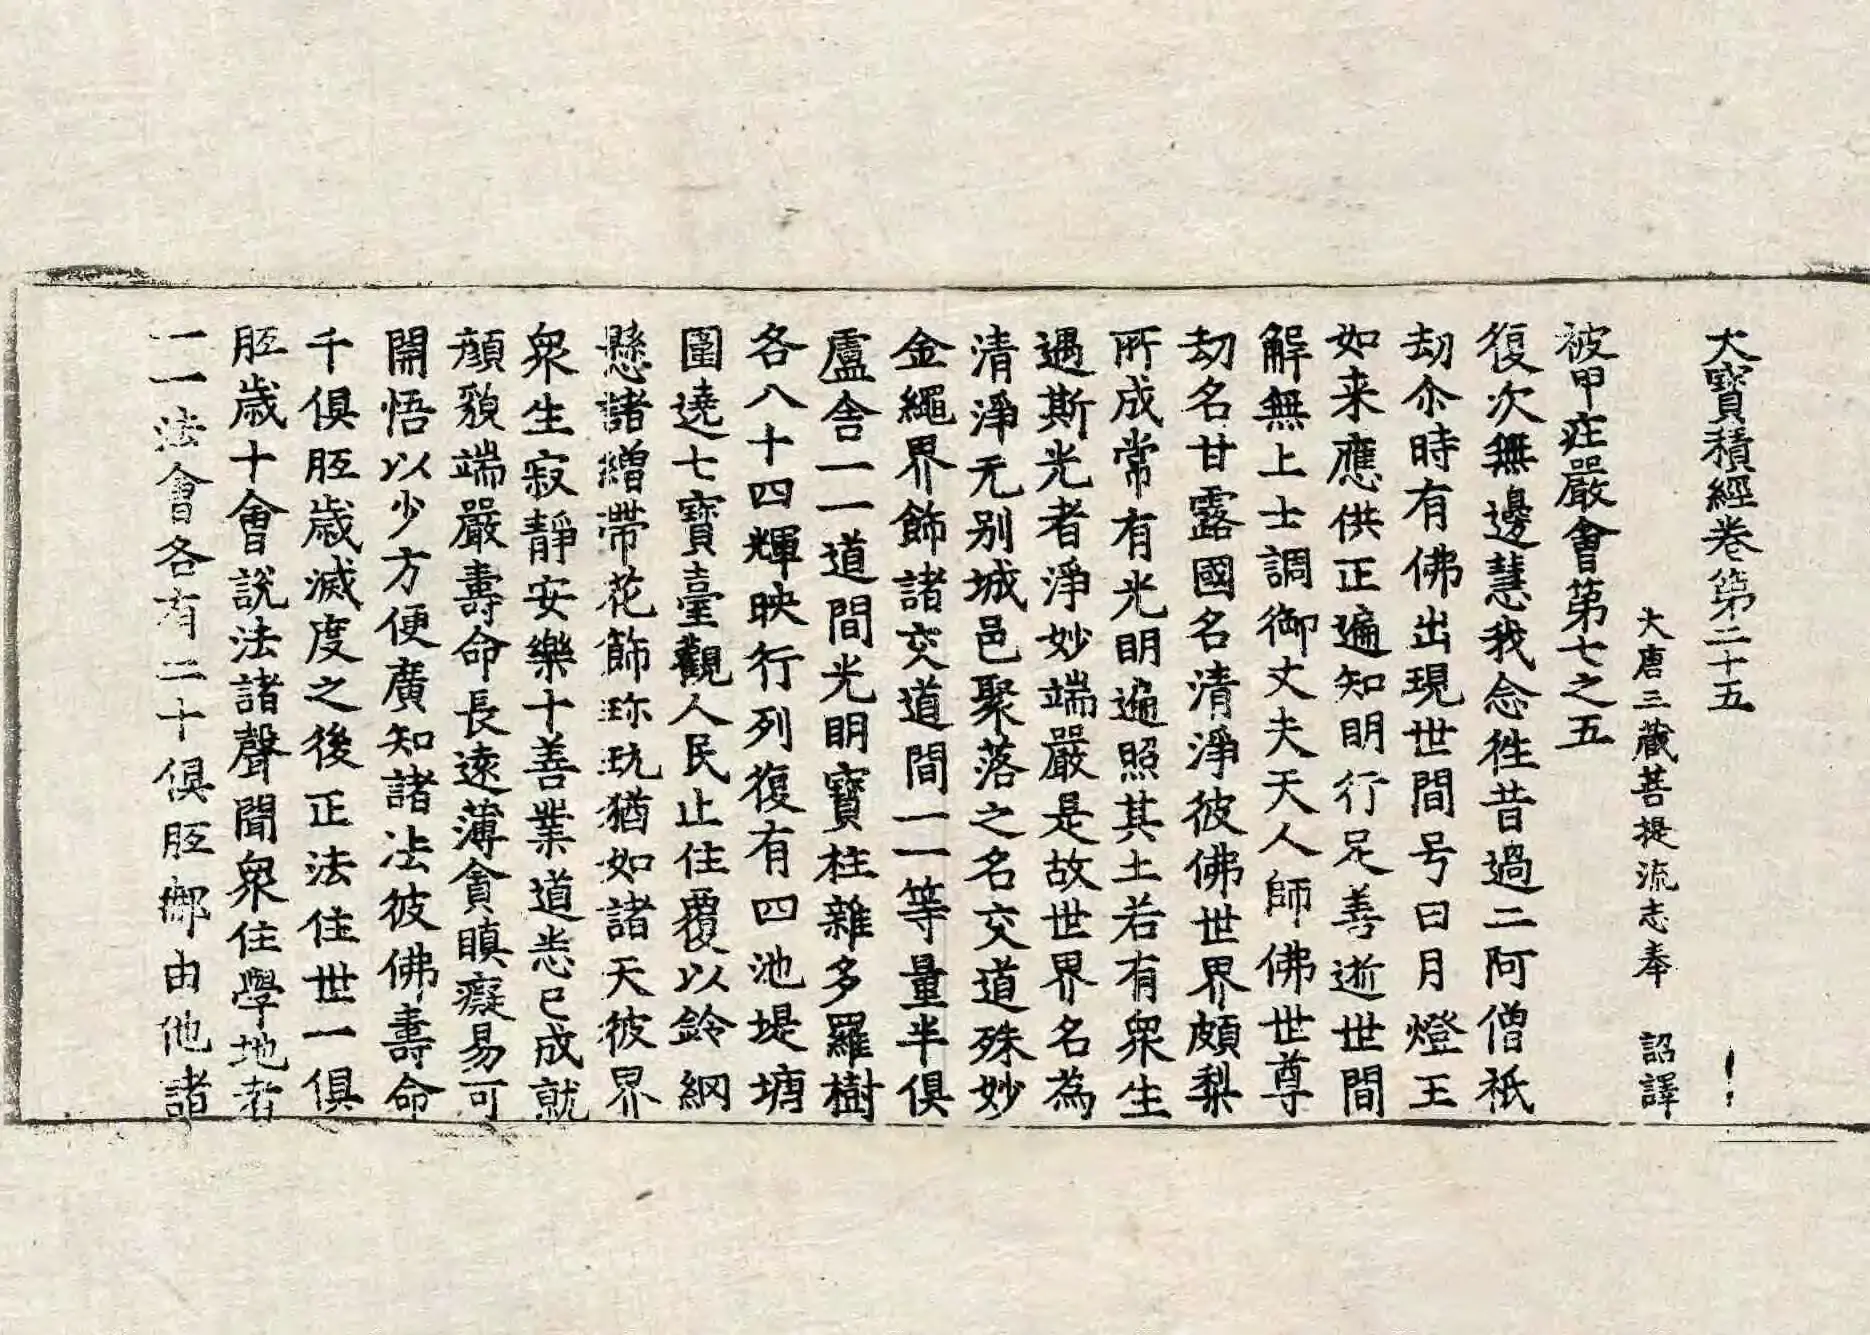 大寶積經卷第二十五
大唐三藏菩提流志奉 詔譯
被甲莊嚴會第七之五
復次無邊慧我念徃昔過二阿僧祇
劫尒時有佛出現世間号曰月燈王
如来應供正遍知明行足善逝世間
解無上士調御丈夫天人師佛世尊
劫名甘露國名清淨彼佛世界頗梨
所成常有光明遍照其土若有衆生
遇斯光者淨妙端嚴是故世界名為
清淨无别城邑聚落之名交道殊妙
金繩界飾諸交道間一一等量半俱
盧舍一一道間光明寶柱雜多羅樹
各八十四輝映行列復有四池堤塘
圍遶七寶臺觀人民止住覆以鈴網
懸諸繒帶花飾珎玩猶如諸天彼界
衆生寂靜安樂十善業道悉已成就
顔貌端嚴壽命長遠薄貪瞋癡易可
開悟以少方便廣知諸法彼佛壽命
千俱胝歲滅度之後正法住世一俱
胝歲十會說法諸聲聞衆住學地者
一一法會各有二十俱胝那由他諸